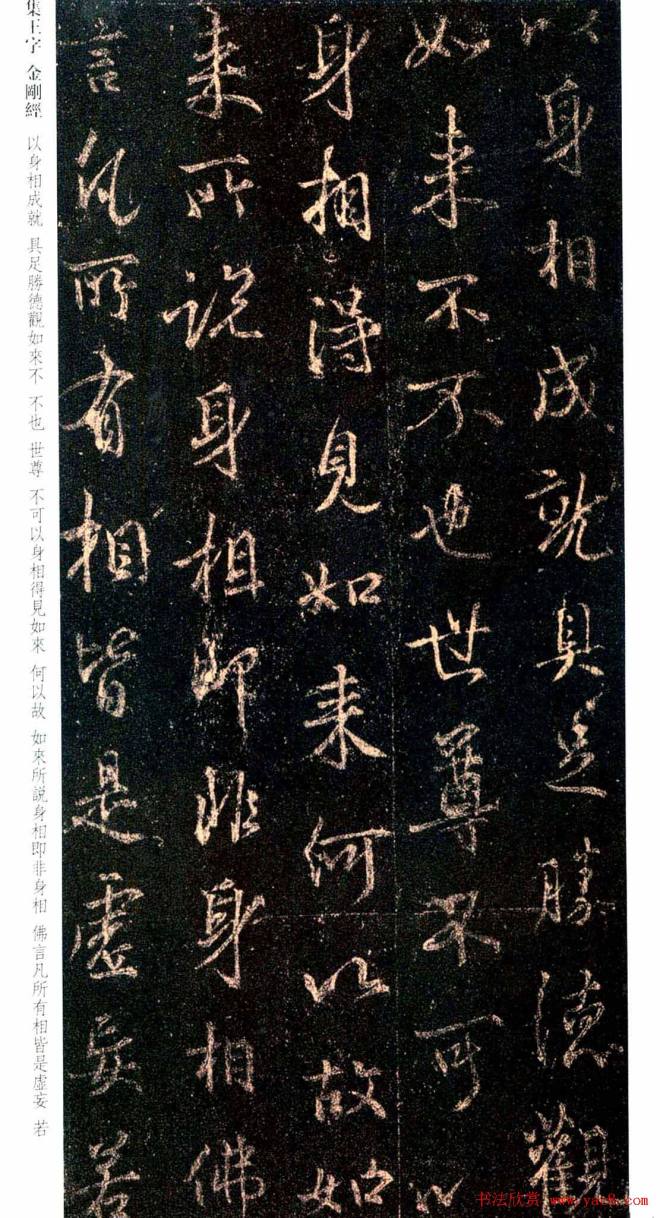 以身相成就具足勝德觀
如来不不也世尊不可以
身相得見如来何以故如
来所说身相即非身相佛
言凡所有相皆是虛妄若
集王字 金剛經 以身相成就 具足勝德觀如來不 不也 世尊 不可以身相得見如來 何以故 如來所説身相即非身相 佛言凡所有相皆是虛妄 若
书法欣赏 www.yac8.com